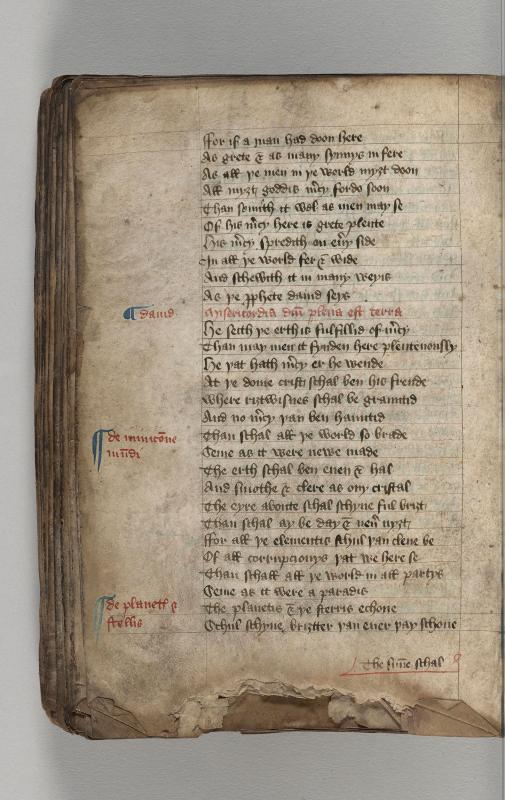 ffor if a man had doon here
As grete & as many synnys in fere
As all þe men in þe world myȝt doon
All myȝt goddis mcy fordo soon
Than semith it wel as men may se
Of his mcy here is grete plente
His mcy spredith on eùy side
In all þe world fer & wide
And schewith it in many weyis
As þe pphete dauid seys
dauid
Misericordia dni plena est terra
He seith þe erth is fulfillid of mcy
Than may men it fynden here plenteuously
He þat hath mcy er he wende
At þe dome crist schal ben his frende
Where riȝtwisnes schal be grauntid
And no mcy þan ben hauntid
de inniocōne
mūdi
Than schal all þe world so brade
Seme as it were newe made
The erth schal ben euen & hal
And smothe & clere as ony cristal
The eyre aboute schal schyne ful briȝt
Than schal ay be day & neù nyȝt
ffor all þe elementis schul þan clene be
Of all corrupcionys þat we here se
Than schall all þe world in all partys
Seme as it were a paradis
de planetis &
stellis
The planetis & þe sterris echone
Schul schyne briȝtter þan euer þay schone
The sūne schal